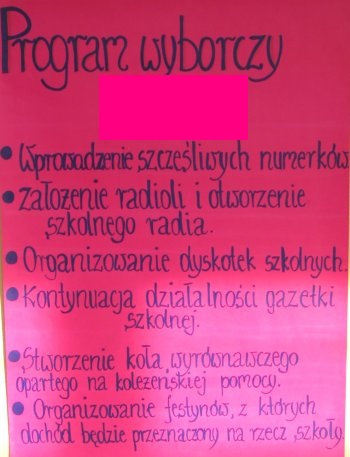 Program wyborczy
• Wprowadzenie szczęśliwych numerków
• Założenie radioli i otworzenie
szkolnego radia.
• Organizowanie dyskotek szkolnych.
• Kontynuacja działalności gazetki
szkolnej.
• Stworzenie koła wyrównawczego
opartego na koleżeńskiej pomocy.
• Organizowanie festynów, z których
dochód będzie przeznaczony na rzecz szkoły.